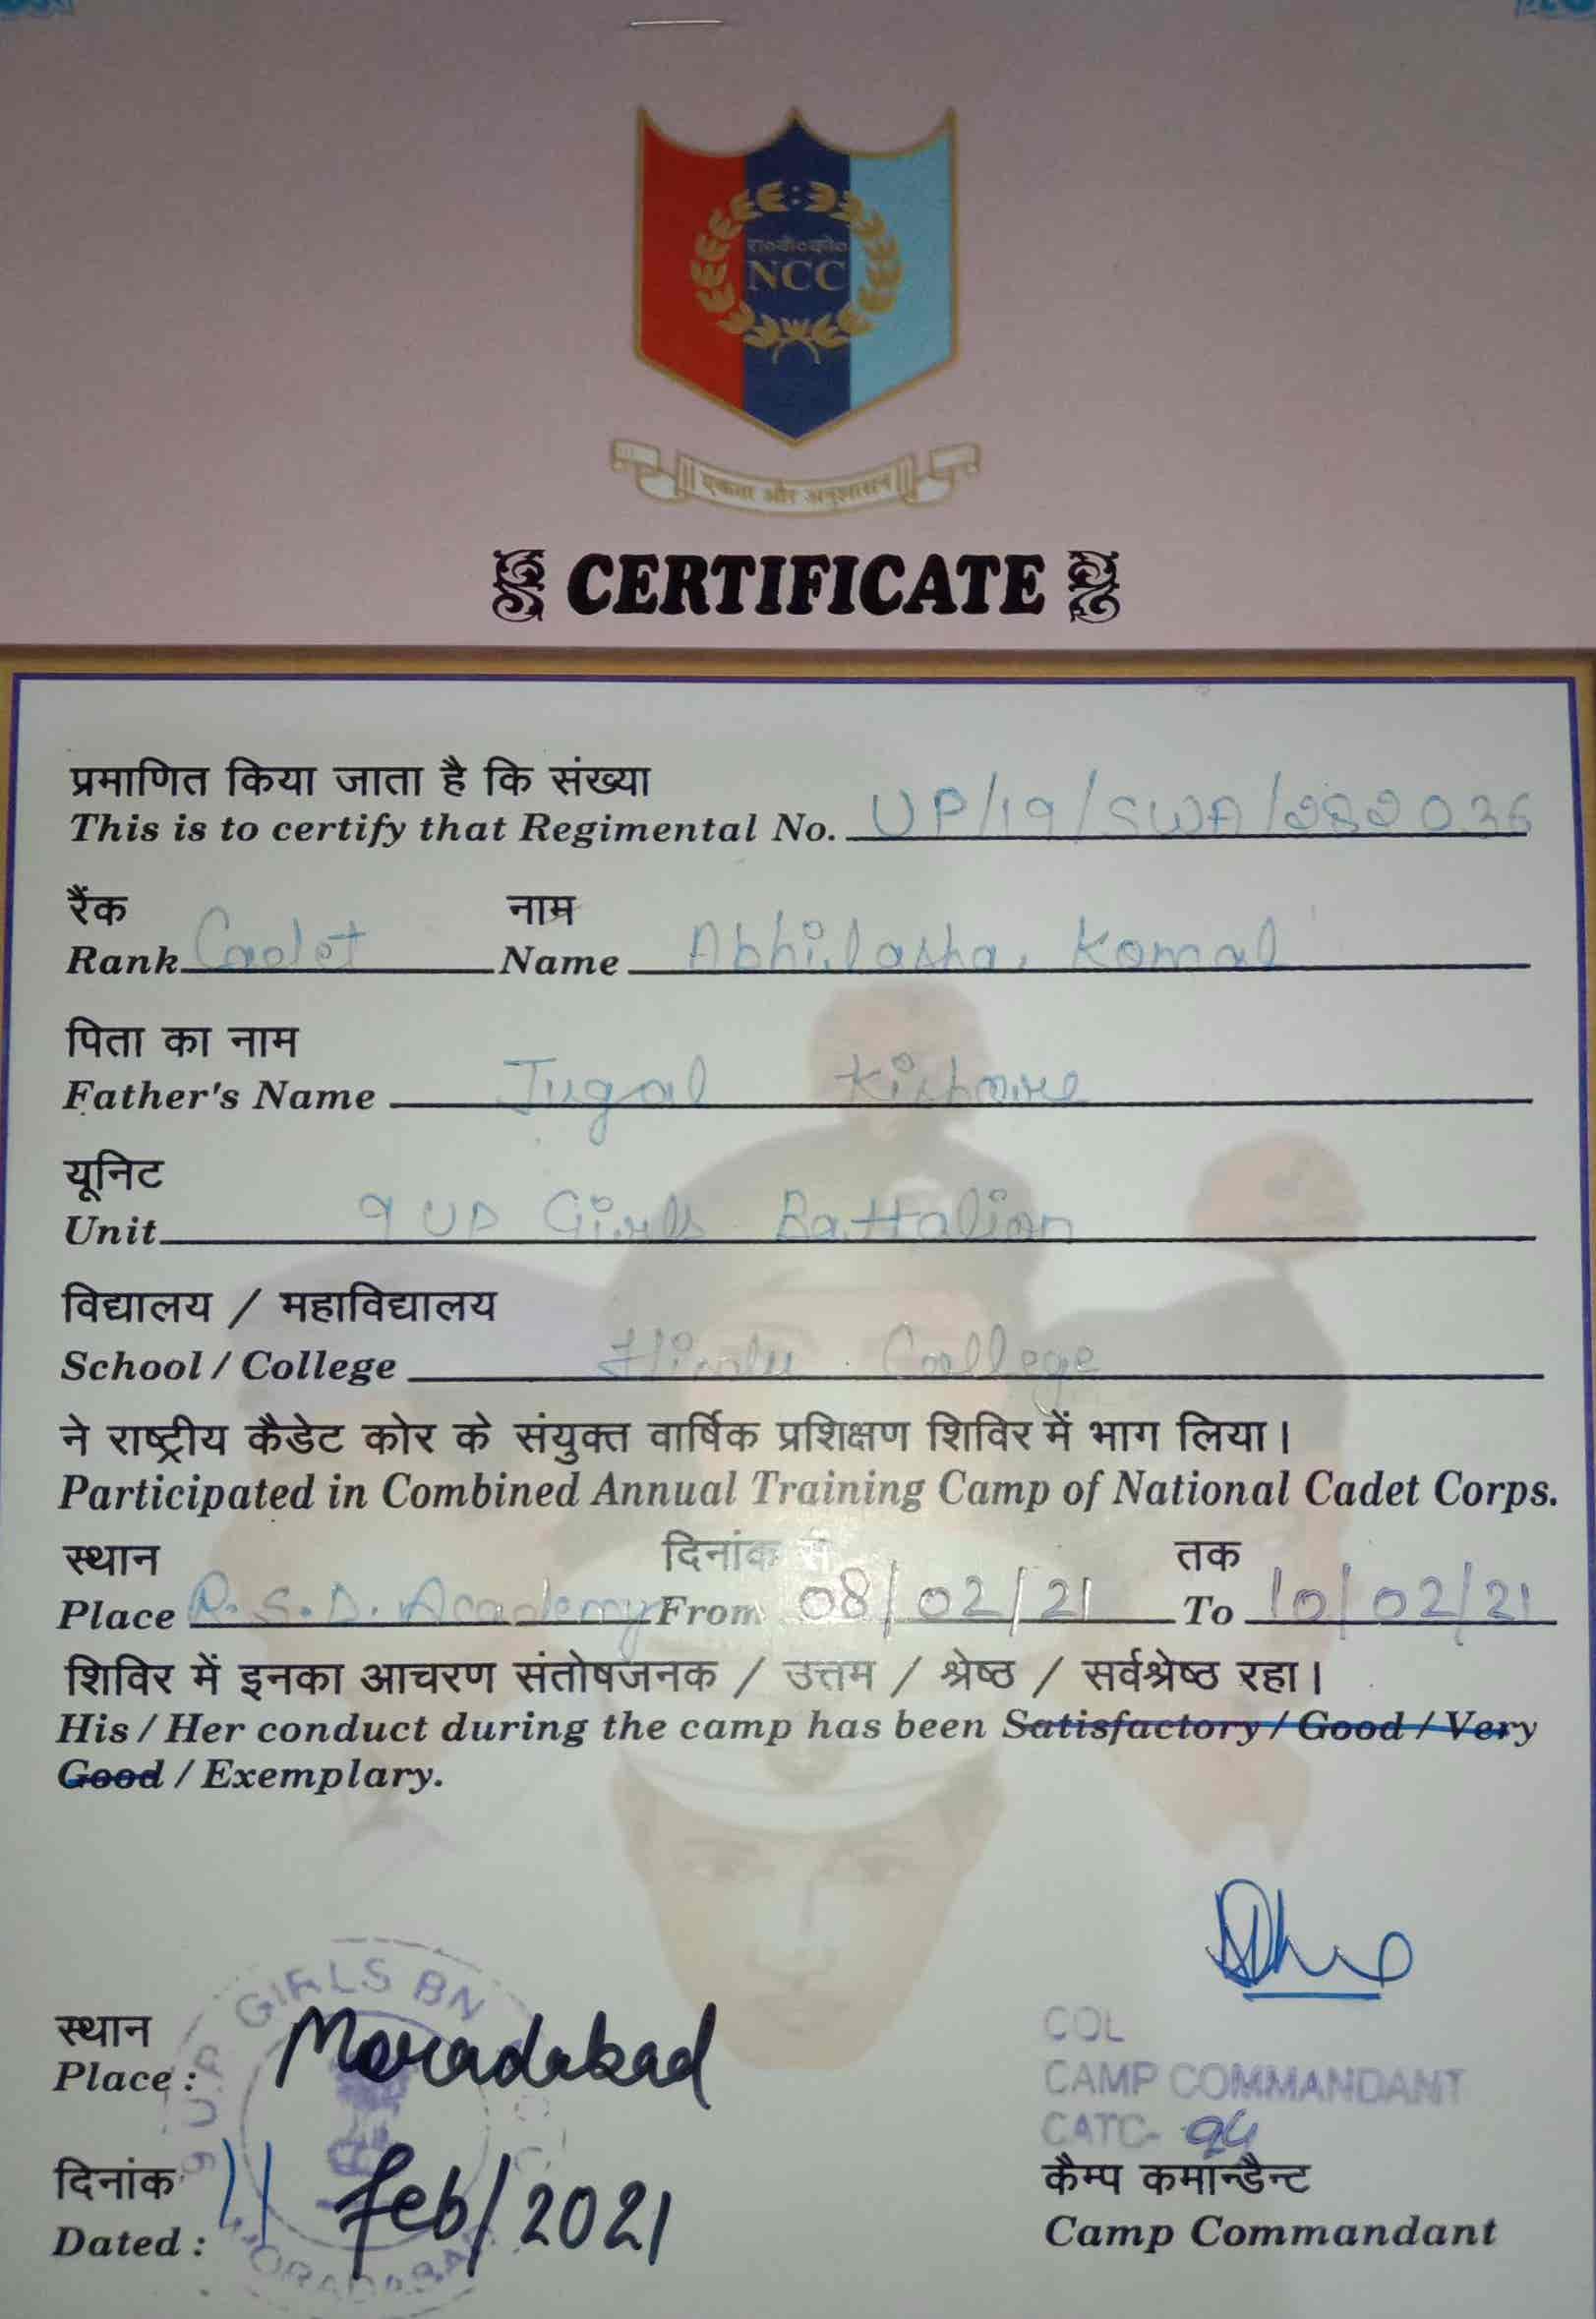 रा०कै०को०
NCC
एकता और अनुशासन
CERTIFICATE
प्रमाणित किया जाता है कि संख्या
This is to certify that Regimental No. UP/19/SWA/282036
रैंक नाम
Rank Cadet Name Abhilasha Komal
पिता का नाम
Father's Name Jugal Kishore
यूनिट
Unit 9 UP Girls Battalion
विद्यालय / महाविद्यालय
School / College Hindu College
ने राष्ट्रीय कैडेट कोर के संयुक्त वार्षिक प्रशिक्षण शिविर में भाग लिया।
Participated in Combined Annual Training Camp of National Cadet Corps.
स्थान दिनांक से तक
Place R.S.D. Academy From 08/02/21 To 10/02/21
शिविर में इनका आचरण संतोषजनक / उत्तम / श्रेष्ठ / सर्वश्रेष्ठ रहा।
His / Her conduct during the camp has been Satisfactory / Good / Very
Good / Exemplary.
9 U.P GIRLS BN
MORADABAD
स्थान
Place : Moradabad
COL
CAMP COMMANDANT
CATC- 94
दिनांक
Dated : 11 Feb/2021
कैम्प कमान्डैन्ट
Camp Commandant